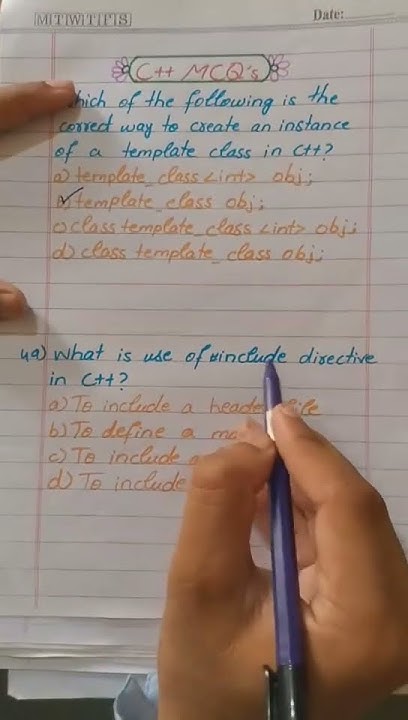 MTWTFS
Date:
C++ MCQ's
hich of the following is the
correct way to create an instance
of a template class in C++?
a) template_class <int> obj;
template_class obj;
c) class template_class <int> obj;
d) class template_class obj;
49) What is use of #include directive
in C++?
a) To include a header file
b) To define a
c) To include
d) To include